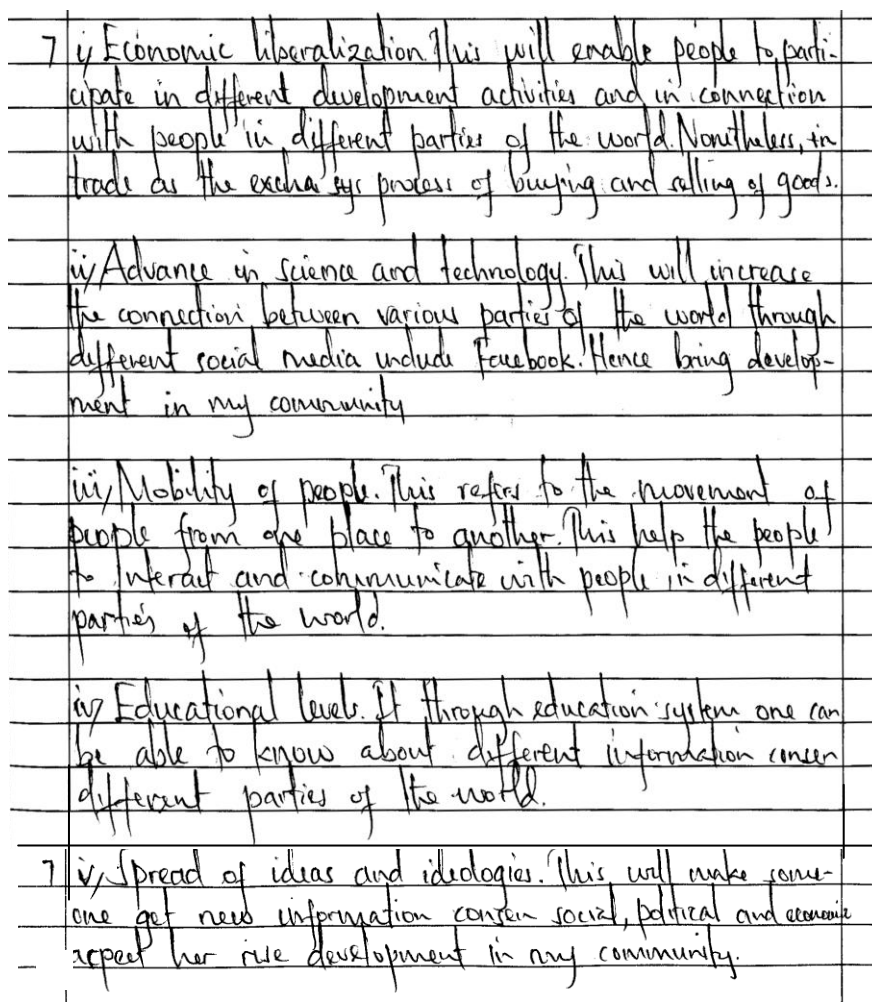 7 i/ Economic liberalization. This will enable people to parti-
cipate in different development activities and in connection
with people in different parties of the world. Nonetheless, in
trade as the process of buying and selling of goods.
ii/ Advance in science and technology. This will increase
the connection between various parties of the world through
different social media include Facebook. Hence bring develop-
ment in my community
iii/ Mobility of people. This refers to the movement of
people from one place to another. This help the people
to interact and communicate with people in different
parties of the world.
iv/ Educational levels. It through education system one can
be able to know about different information consen
different parties of the world.
7 v/ Spread of ideas and ideologies. This will make some-
one get new information consen social, political and economic
aspect her rise development in my community.